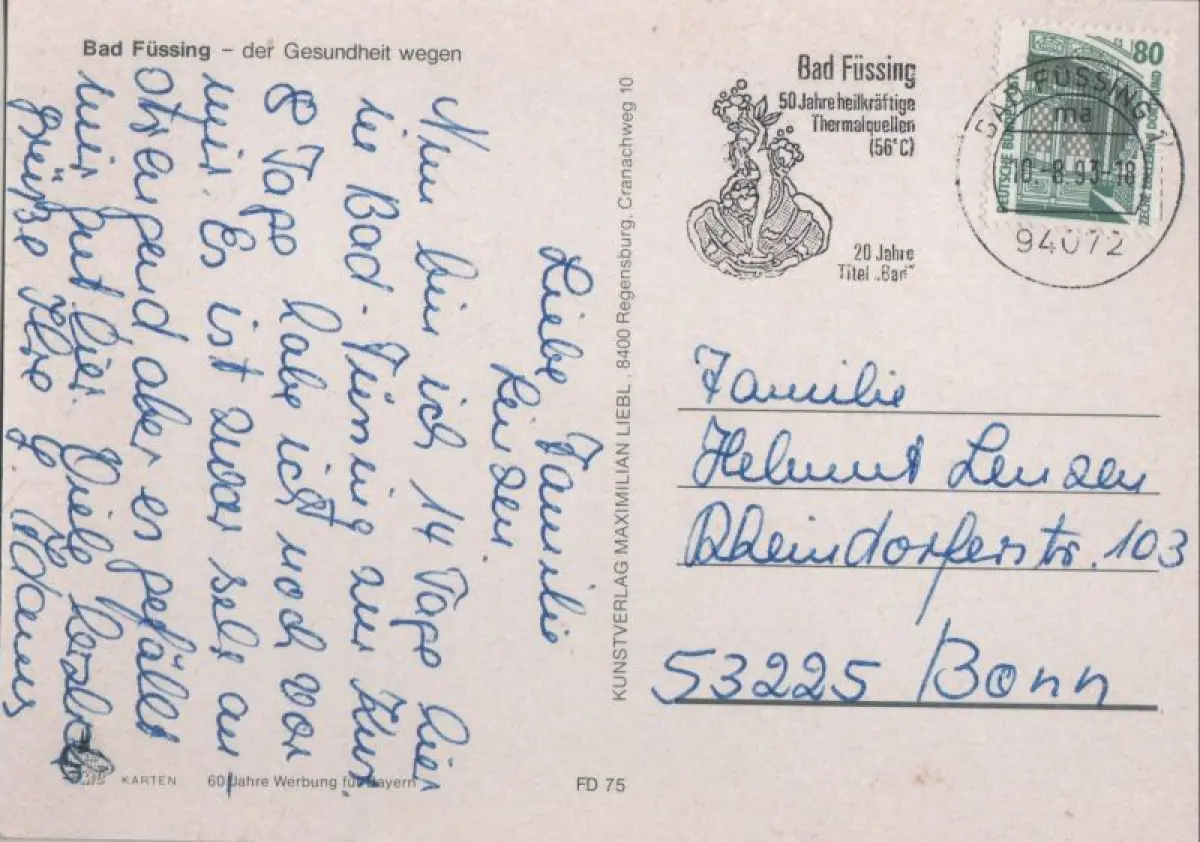 Bad Füssing – der Gesundheit wegen
Liebe Familie
Lenzen.
Nun bin ich 14 Tage hier
in Bad-Füssing zur Kur
8 Tage habe ich noch vor
mir. Es ist zwar sehr an
strengend, aber es gefällt
mir gut hier. Viele herzliche
Grüße Ihre
KARTEN 60 Jahre Werbung für Bayern
FD 75
KUNSTVERLAG MAXIMILIAN LIEBL, 8400 Regensburg, Cranachweg 10
Bad Füssing
50 Jahre heilkräftige
Thermalquellen
(56°C)
20 Jahre
Titel „Bad“
80
DEUTSCHE BUNDESPOST
BAD FÜSSING 1
ma
10.-8.93-18
94072
Familie
Helmut Lenzen
Rheindorferstr. 103
53225 Bonn